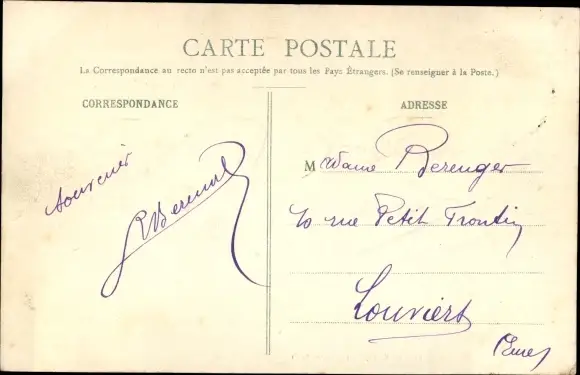 CARTE POSTALE
La Correspondance au recto n'est pas acceptée par tous les Pays Étrangers. (Se renseigner à la Poste.)
CORRESPONDANCE
Souvenir
ADRESSE
Madame Berenger
10 rue Petit Trontin
Louviers
(Eure)